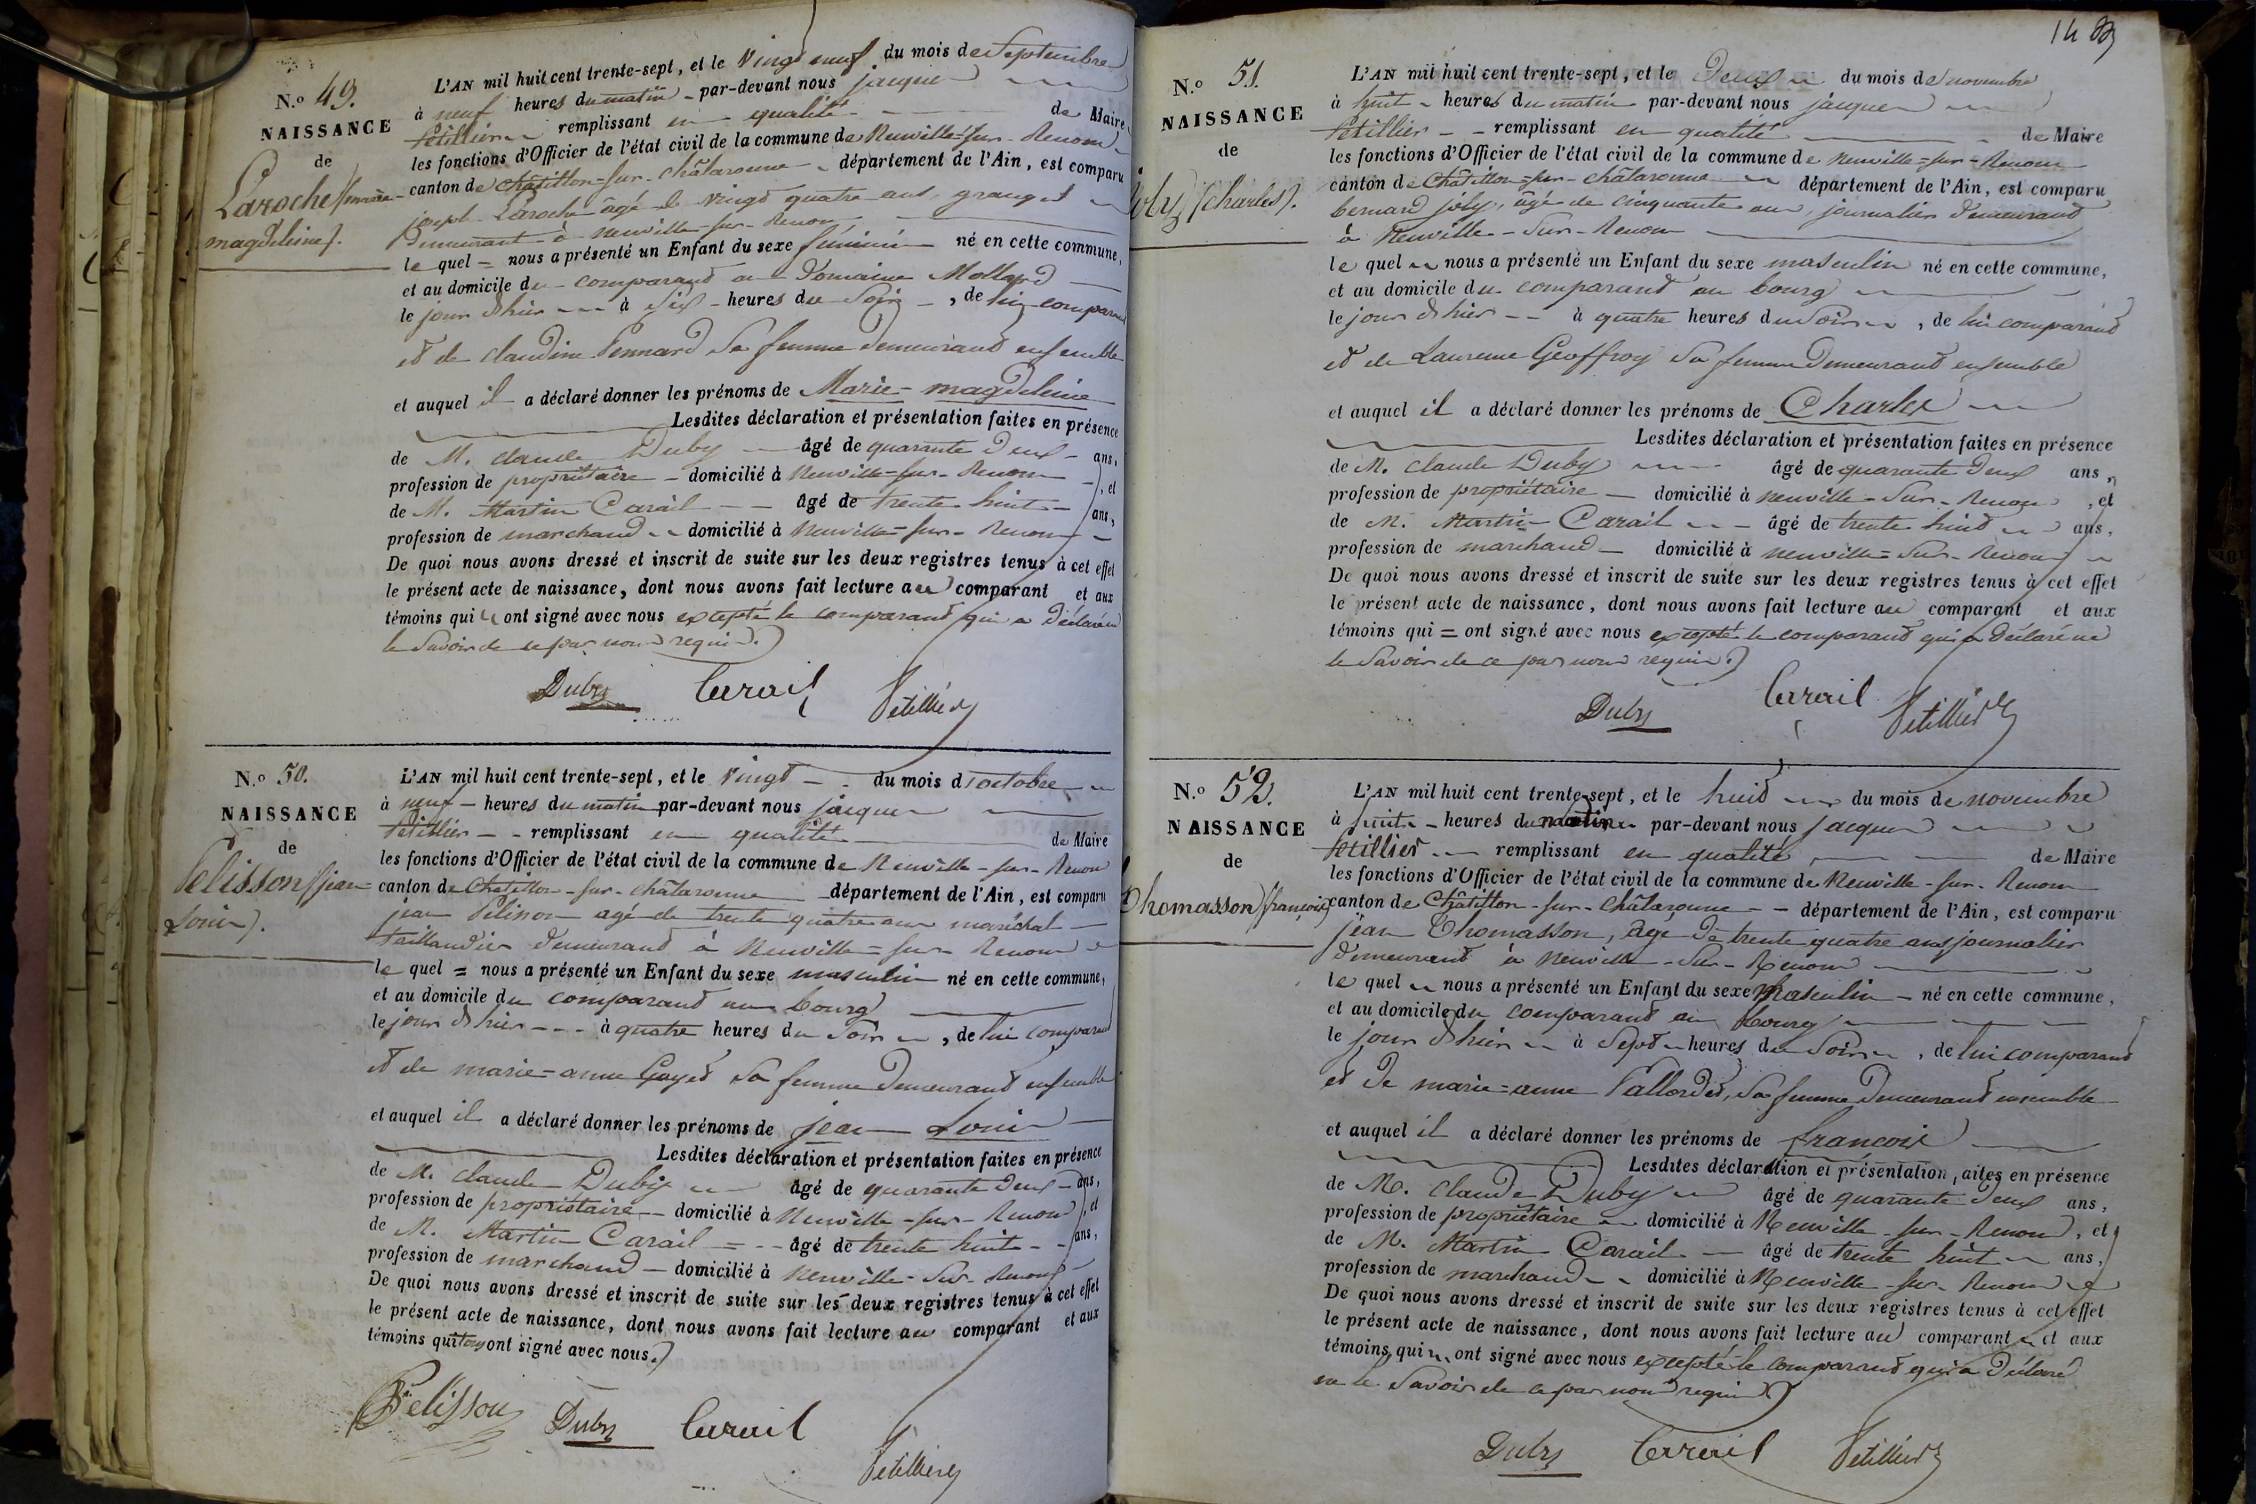 N.o 49.
NAISSANCE
de
Laroche (marie-
magdeleine).
L'AN mil huit cent trente-sept, et le vingt neuf du mois de Septembre
à neuf heures du matin par-devant nous jacques
remplissant en qualité de Maire
les fonctions d'Officier de l'état civil de la commune de Neuville-sur-Renom
canton de Châtillon-sur-châlaronne département de l'Ain, est comparu
joseph Laroche âgé de vingt quatre ans, granger
demeurant à neuville-sur-Renom
le quel = nous a présenté un Enfant du sexe féminin né en cette commune,
et au domicile du comparant au Domaine Mollard
le jour d'hier à six heures du Soir, de lui comparant
et de claudine Pennard Sa femme demeurant ensemble
et auquel il a déclaré donner les prénoms de Marie-magdeleine
Lesdites déclaration et présentation faites en présence
de M. claude Duby âgé de quarante deux ans,
profession de propriétaire domicilié à Neuville-sur-Renom, et
de M. Martin Carail âgé de trente huit ans,
profession de marchand domicilié à Neuville-sur-Renom
De quoi nous avons dressé et inscrit de suite sur les deux registres tenus à cet effet
le présent acte de naissance, dont nous avons fait lecture au comparant et aux
témoins qui ont signé avec nous excepté le comparant qui a déclaré ne
le Savoir de ce par nous requis.
Duby Carail Petillier
N.o 50.
NAISSANCE
de
Pelisson (jean-
Louis).
L'AN mil huit cent trente-sept, et le vingt du mois d'octobre
à neuf heures du matin par-devant nous jacques
Petillier remplissant en qualité de Maire
les fonctions d'Officier de l'état civil de la commune de Neuville-sur-Renom
canton de Chatillon-sur-châlaronne département de l'Ain, est comparu
jean Pelisson agé de trente quatre ans maréchal
taillandier demeurant à Neuville-sur-Renom
le quel = nous a présenté un Enfant du sexe masculin né en cette commune,
et au domicile du comparant au bourg
le jour d'hier à quatre heures du Soir, de lui comparant
et de marie-anne Goyet Sa femme demeurant ensemble
et auquel il a déclaré donner les prénoms de jean Louis
Lesdites déclaration et présentation faites en présence
de M. claude Duby âgé de quarante deux ans,
profession de propriétaire domicilié à Neuville-sur-Renom, et
de M. Martin Carail âgé de trente huit ans,
profession de marchand domicilié à Neuville-sur-Renom
De quoi nous avons dressé et inscrit de suite sur les deux registres tenus à cet effet
le présent acte de naissance, dont nous avons fait lecture au comparant et aux
témoins qui tous ont signé avec nous.
Pelisson Duby Carail
Petillier
N.o 51.
NAISSANCE
de
joly (charles).
L'AN mil huit cent trente-sept, et le Deux du mois de novembre
à huit heures du matin par-devant nous jacques
Petillier remplissant en qualité de Maire
les fonctions d'Officier de l'état civil de la commune de Neuville-sur-Renom
canton de Châtillon-sur-châlaronne département de l'Ain, est comparu
bernard joly, âgé de cinquante ans, journalier demeurant
à Neuville-Sur-Renom
le quel nous a présenté un Enfant du sexe masculin né en cette commune,
et au domicile du comparant au bourg
le jour d'hier à quatre heures du Soir, de lui comparant
et de Laurence Geoffroy Sa femme demeurant ensemble
et auquel il a déclaré donner les prénoms de Charles
Lesdites déclaration et présentation faites en présence
de M. claude Duby âgé de quarante deux ans,
profession de propriétaire domicilié à Neuville-Sur-Renom, et
de M. Martin Carail âgé de trente huit ans,
profession de marchand domicilié à neuville-Sur-Renom
De quoi nous avons dressé et inscrit de suite sur les deux registres tenus à cet effet
le présent acte de naissance, dont nous avons fait lecture au comparant et aux
témoins qui = ont signé avec nous excepté le comparant qui a déclaré ne
le Savoir de ce par nous requis.
Duby Carail Petillier
N.o 52.
NAISSANCE
de
Thomasson (françois)
L'AN mil huit cent trente-sept, et le huit du mois de novembre
à huit heures du matin par-devant nous jacques
Petillier remplissant en qualité de Maire
les fonctions d'Officier de l'état civil de la commune de Neuville-sur-Renom
canton de Châtillon-sur-Châlaronne département de l'Ain, est comparu
jean Thomasson, âgé de trente quatre ans journalier
demeurant à Neuville-Sur-Renom
le quel nous a présenté un Enfant du sexe Masculin né en cette commune,
et au domicile du comparant au bourg
le jour d'hier à Sept heures du Soir, de lui comparant
et de marie-anne Sa femme demeurant ensemble
et auquel il a déclaré donner les prénoms de françois
Lesdites déclaration et présentation, aites en présence
de M. claude Duby âgé de quarante deux ans,
profession de propriétaire domicilié à Neuville-sur-Renom, et
de M. Martin Carail âgé de trente huit ans,
profession de marchand domicilié à Neuville-sur-Renom
De quoi nous avons dressé et inscrit de suite sur les deux registres tenus à cet effet
le présent acte de naissance, dont nous avons fait lecture au comparant et aux
témoins qui ont signé avec nous excepté le comparant qui a déclaré
ne le Savoir de ce par nous requis
Duby Carail Petillier